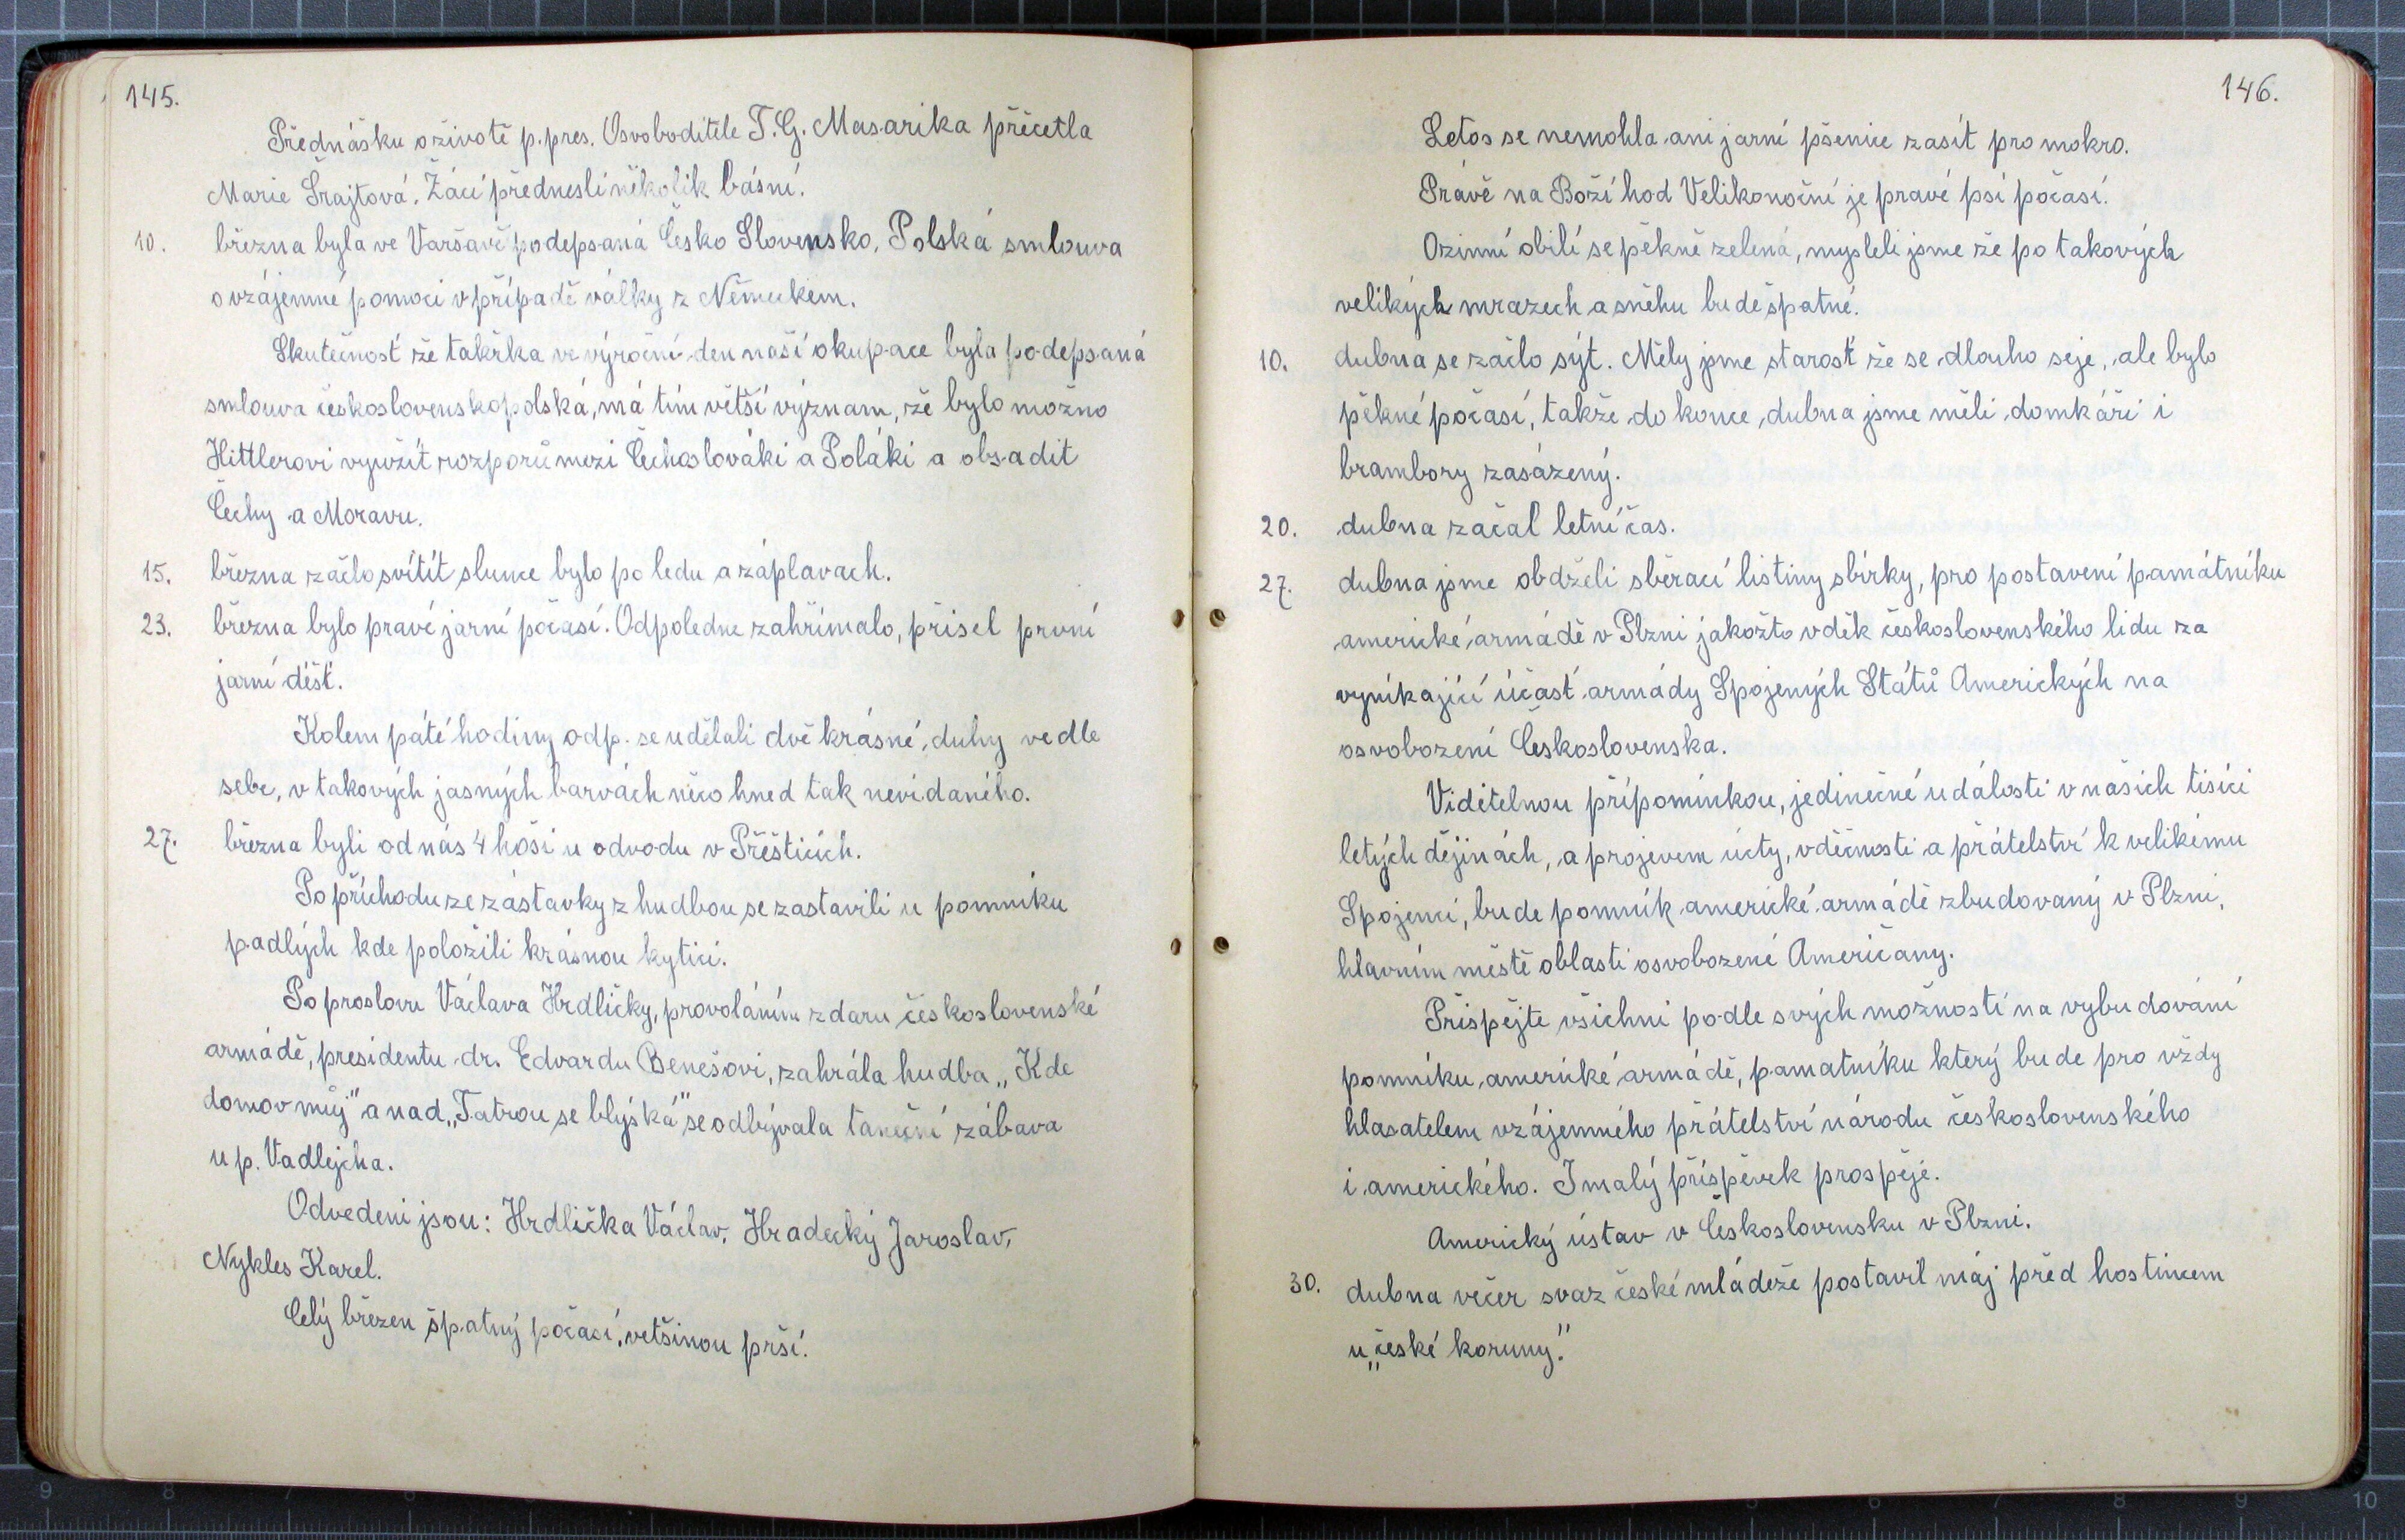 145.
Přednášku o životě p. pres. Osvoboditele T. G. Masarika přečetla
Marie Šrajtová. Žáci přednesli několik básní.
10. března byla ve Varšavě podepsaná Česko Slovensko, Polská smlouva
o vzájemné pomoci v případě války z Německem.
Skutečnosť že takřka ve výroční den naší okupace byla podepsaná
smlouva československopolská, má tím větší význam, že bylo možno
Hittlerovi využít rozporů mezi Čechoslováki a Poláki a obsadit
Čechy a Moravu.
15. března začlo svítít slunce bylo po ledu a záplavach.
23. března bylo pravé jarní počasí. Odpoledne zahřímalo, přišel první
jarní déšť.
Kolem páté hodiny odp. se udělali dvě krásné, duhy vedle
sebe, v takových jasných barvách něco hned tak nevídaného.
27. března byli od nás 4 hoši u odvodu v Přešticích.
Po příchodu ze zástavky z hudbou se zastavili u pomníku
padlých kde položili krásnou kytici.
Po proslovu Václava Hrdličky, provoláním zdaru československé
armádě, presidentu dr. Edvardu Benešovi, zahrála hudba „Kde
domov můj" a nad „Tatrou se blýská" se odbývala taneční zábava
u p. Vadlejcha.
Odvedeni jsou: Hrdlička Václav, Hradecký Jaroslav,
Nykles Karel.
Celý březen špatný počasí, vetšinou prší.
146.
Letos se nemohla ani jarní pšenice zasít pro mokro.
Právě na Boží hod Velikonoční je pravé psí počasí.
Ozimní obilí se pěkně zelená, mysleli jsme že po takových
velikých mrazech a sněhu bude špatné.
10. dubna se začlo sýt. Měly jsme starosť že se dlouho seje, ale bylo
pěkné počasí, takže do konce dubna jsme měli domkáři i
brambory zasázený.
20. dubna začal letní čas.
27. dubna jsme obdželi sběrací listiny sbírky, pro postavení památníku
americké armádě v Plzni jakožto vděk československého lidu za
vynikající účasť armády Spojených Států Amerických na
osvobození Československa.
Viditelnou připomínkou, jedinečné události v našich tisíci
letých dějinách, a projevem úcty, vděčnosti a přátelství k velikému
Spojenci, bude pomník americké armádě zbudovaný v Plzni,
hlavním městě oblasti osvobozené Američany.
Přispějte všichni podle svých možností na vybudování
pomníku americké armádě, pamatníku který bude pro vždy
hlasatelem vzájemného přátelství národu československého
i amerického. I malý příspěvek prospěje.
Americký ústav v Československu v Plzni.
30. dubna večer svaz české mládeže postavil máj před hostincem
u „české koruny."
9 8 7 6 5 6 7 8 9 10